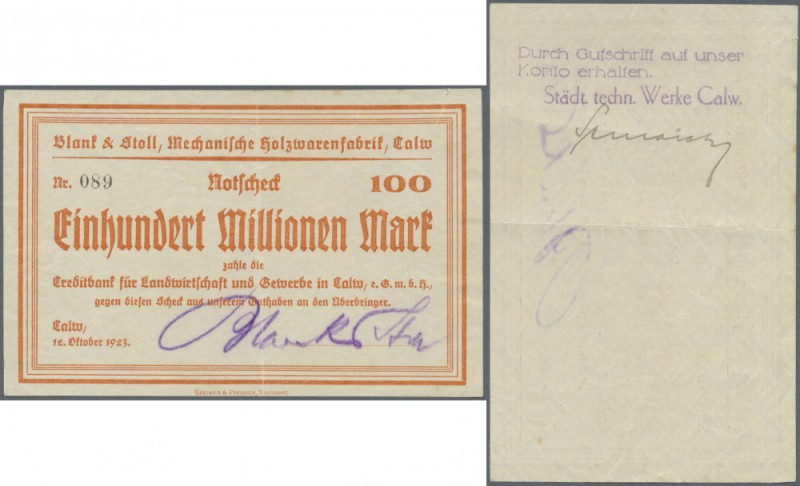 Blank & Stoll, Mechanische Holzwarenfabrik, Calw
Nr. 089 Notscheck 100
Einhundert Millionen Mark
zahle die
Creditbank für Landwirtschaft und Gewerbe in Calw, e. G. m. b. H.,
gegen diesen Scheck aus unserem Guthaben an den Überbringer.
Calw,
12. Oktober 1923.
Blank & Stoll
Greiner & Pfeiffer, Stuttgart
Durch Gutschrift auf unser
Konto erhalten.
Städt. techn. Werke Calw.